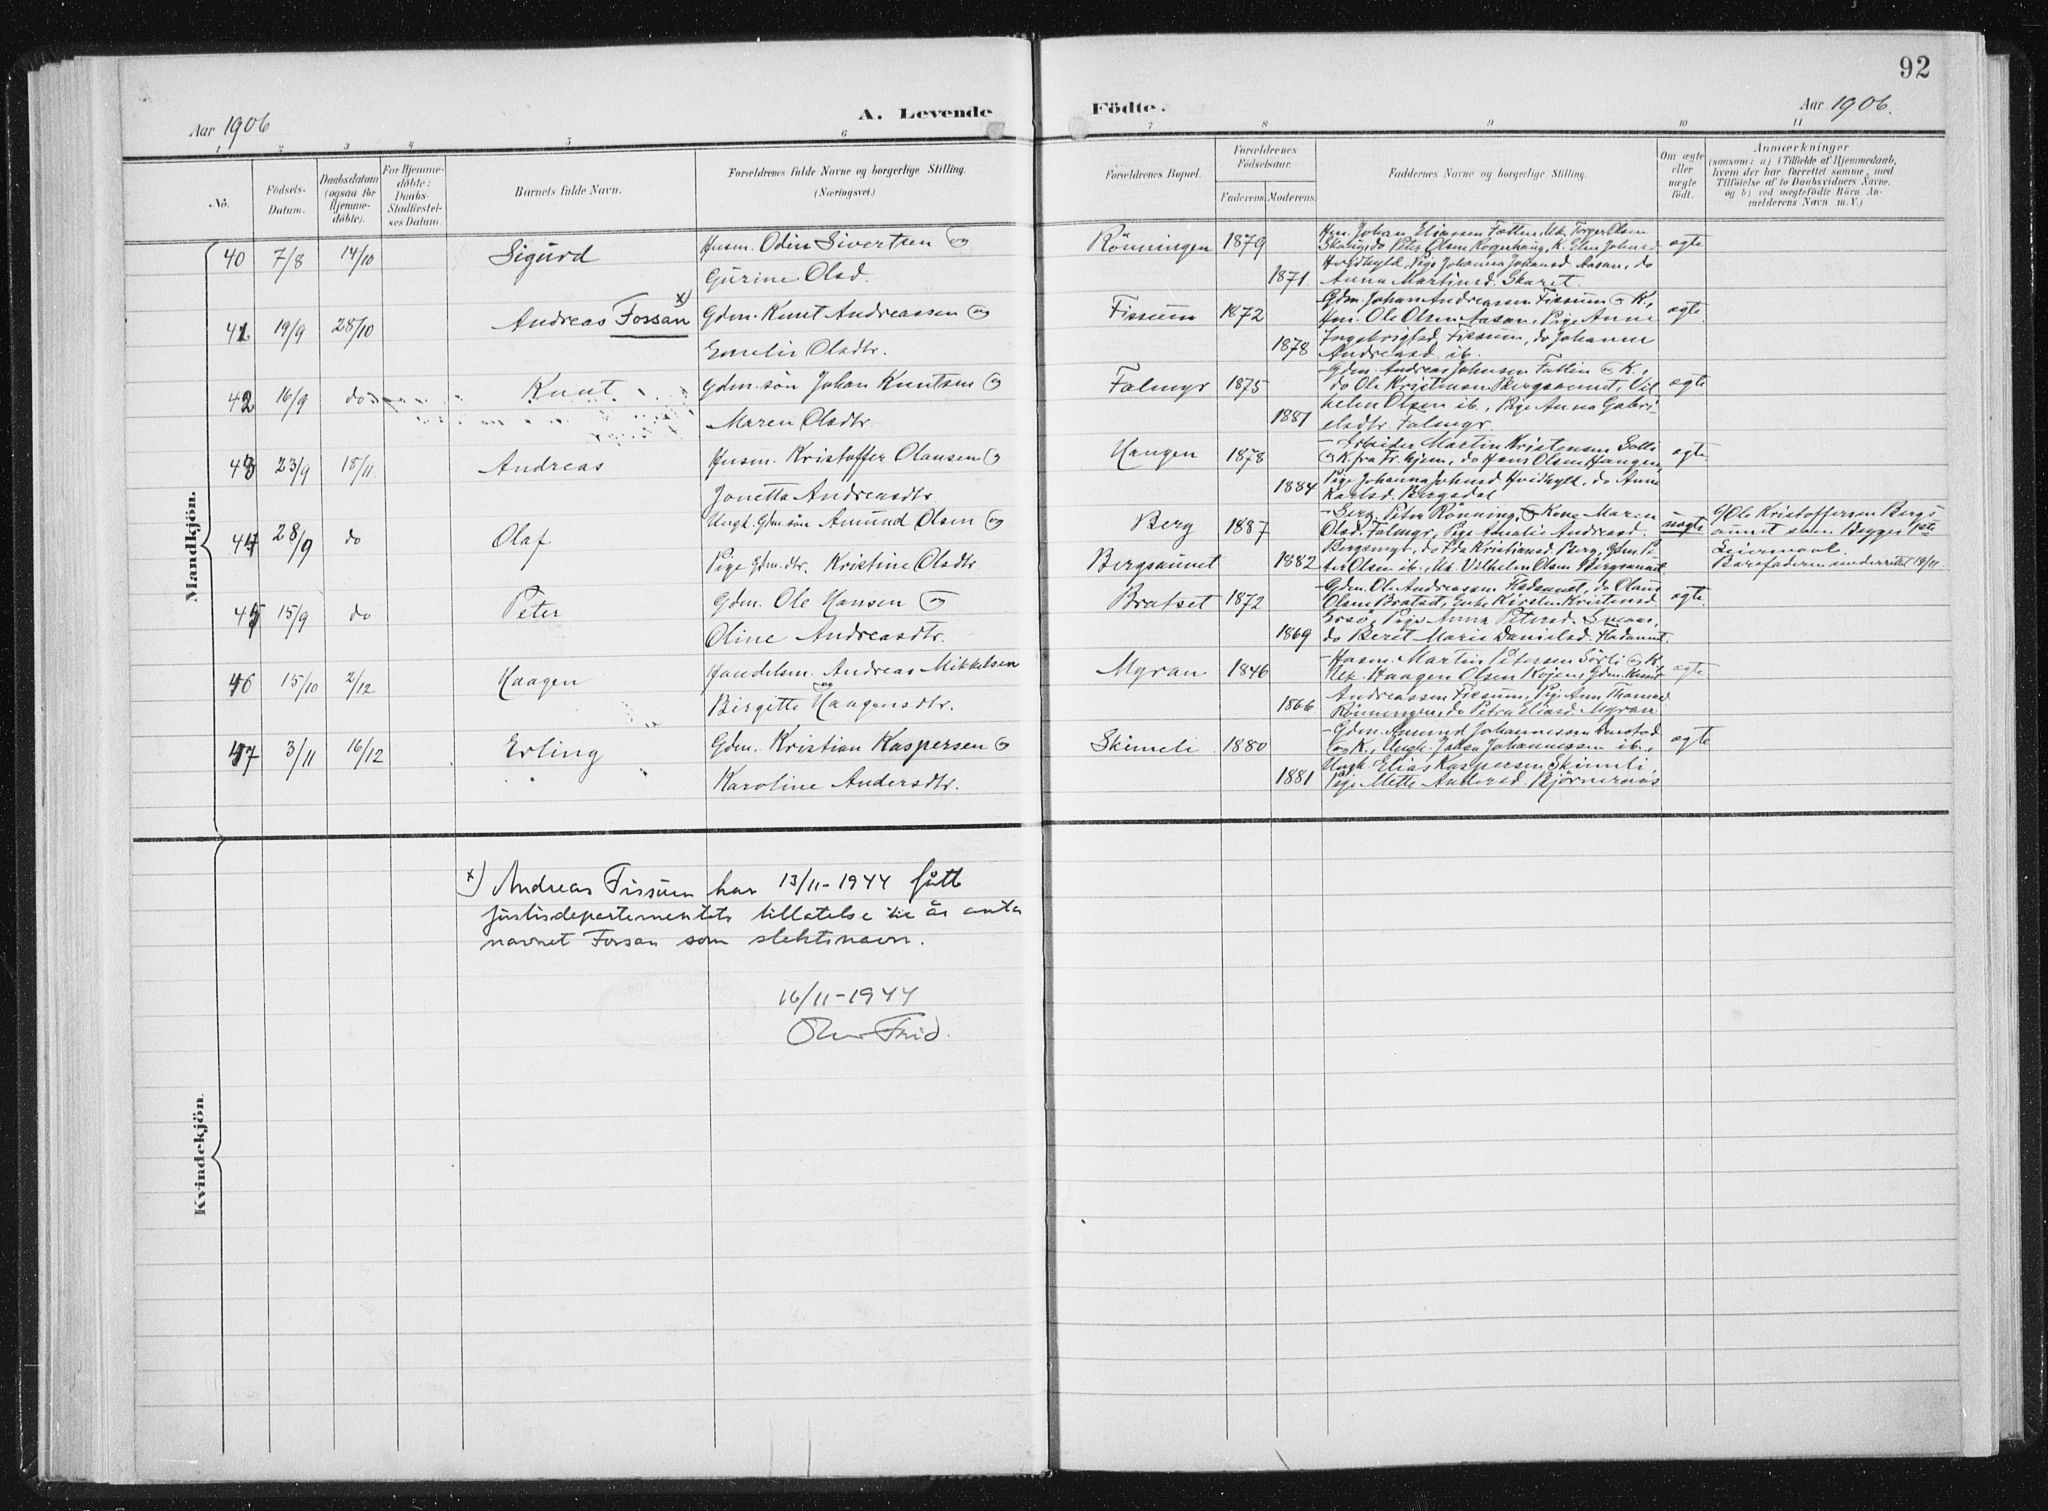 92
Aar 1906
A. Levende
Födte.
Aar 1906.
1 2 3 4 5 6 7 8 9 10 11
No.
Födsels-Datum.
Daabsdatum (ogsaa for Hjemmedöbte).
For Hjemmedöbte: Daabs-Stadfæstelses Datum
Barnets fulde Navn.
Forældrenes fulde Navne og borgerlige Stilling. (Næringsvei.)
Forældrenes Bopæl.
Forældrenes Födselsaar.
Faderens. Moderens.
Faddernes Navne og borgerlige Stilling.
Om ægte eller uægte födt.
Anmærkninger
(saasom: a) i Tilfælde af Hjemmedaab, hvem der har forrettet samme, med Tilföielse af to Daabsvidners Navne, og b) ved uægtefödte Börn Anmelderens Navn m. V.)
Mandkjön.
40 7/8 14/10 Sigurd Husm. Odin Sivertsen og Rönningen 1879 ægte
Gurine Olsd. 1871
Anna Martinsd. Skaret.
41 19/9 28/10 Andreas Fossan x) Gdm. Knut Andreassen og Fissum 1872 Gdm. Johan Andreassen Fissum og K., ægte
Hm. Ole Olsen Aasan, Pige Anne
Emelie Olsdtr. 1878 Ingebrigtsd. Fissum, do Johanne
Andreasd. ib.
42 16/9 do Knut Gdm. sön Johan Knutsen og Falmyr 1875 Gdm. Andreas Johnsen Fallin og K., ægte
do Ole Kristensen Bergsaunet, Vil-
Maren Olsdtr. 1881 helm Olsen ib., Pige Anna Gabri-
elsdtr. Falmyr
43 23/9 18/11 Andreas Husm. Kristoffer Olausen og Haugen 1878 Arbeider Martin Kristensen ægte
og K. fra Tr.hjem, do Hans Olsen Haugen,
Jonetta Andreasdtr. 1884 Pige Johanna Johnsd. Hvidhyld, do Anne
Karlsd. Bergsdal
44 28/9 do Olaf Ungk. Gdm. sön Amund Olsen og Berg 1887 Peter Rönning, og Kone Maren uægte G. Ole Kristoffersen Bergs-
Olsd. Falmyr, Pige Amalie Andreasd. aunet som Begges 1ste
Pige Gdm. dtr. Kristine Olsdtr. Bergsaunet 1882 Bergsmyr, do Ida Kristiansd. Berg, Gdm. Pe- Leiermaal.
ter Olsen ib., Uk. Vilhelm Olsen Bergsaunet Barefaderen underrettet 19/11
45 15/9 do Peter Gdm. Ole Hansen og Bratset 1872 Gdm. Ole Andreassen Hadaunet, do Olaus ægte.
Olsen Bratset, Enke Kirsten Kristensd.
Oline Andreasdtr. 1869 Pige Anna Petersd.
do Beret Marie Danielsd. Hadaunet.
46 15/10 2/12 Haagen Handelsm. Andreas Mikkelsen og Myran 1846 Husm. Martin Petersen Sörli og K. ægte
Haagen Olsen Kojen, Gdm. Knut
Birgitte Haagensdtr. 1866 Andreassen Fissum, Pige Ann Thomasd.
Rönningen, do Petra Eliasd. Myran
47 3/11 16/12 Erling Gdm. Kristian Kaspersen og Skimeli 1880 Gdm. Amund Johannessen ægte
og K., Ungk. Johan Johannessen ib.,
Karoline Andersdtr. 1881 Ungk. Elias Kaspersen Skimeli,
Pige Mette Andersd. Björnernäs
Kvindekjön.
x) Andreas Fissum har 13/11-1944 fått
justisdepartementets tillatelse til år anta
navnet Fossan som slektsnavn.
16/11-1944